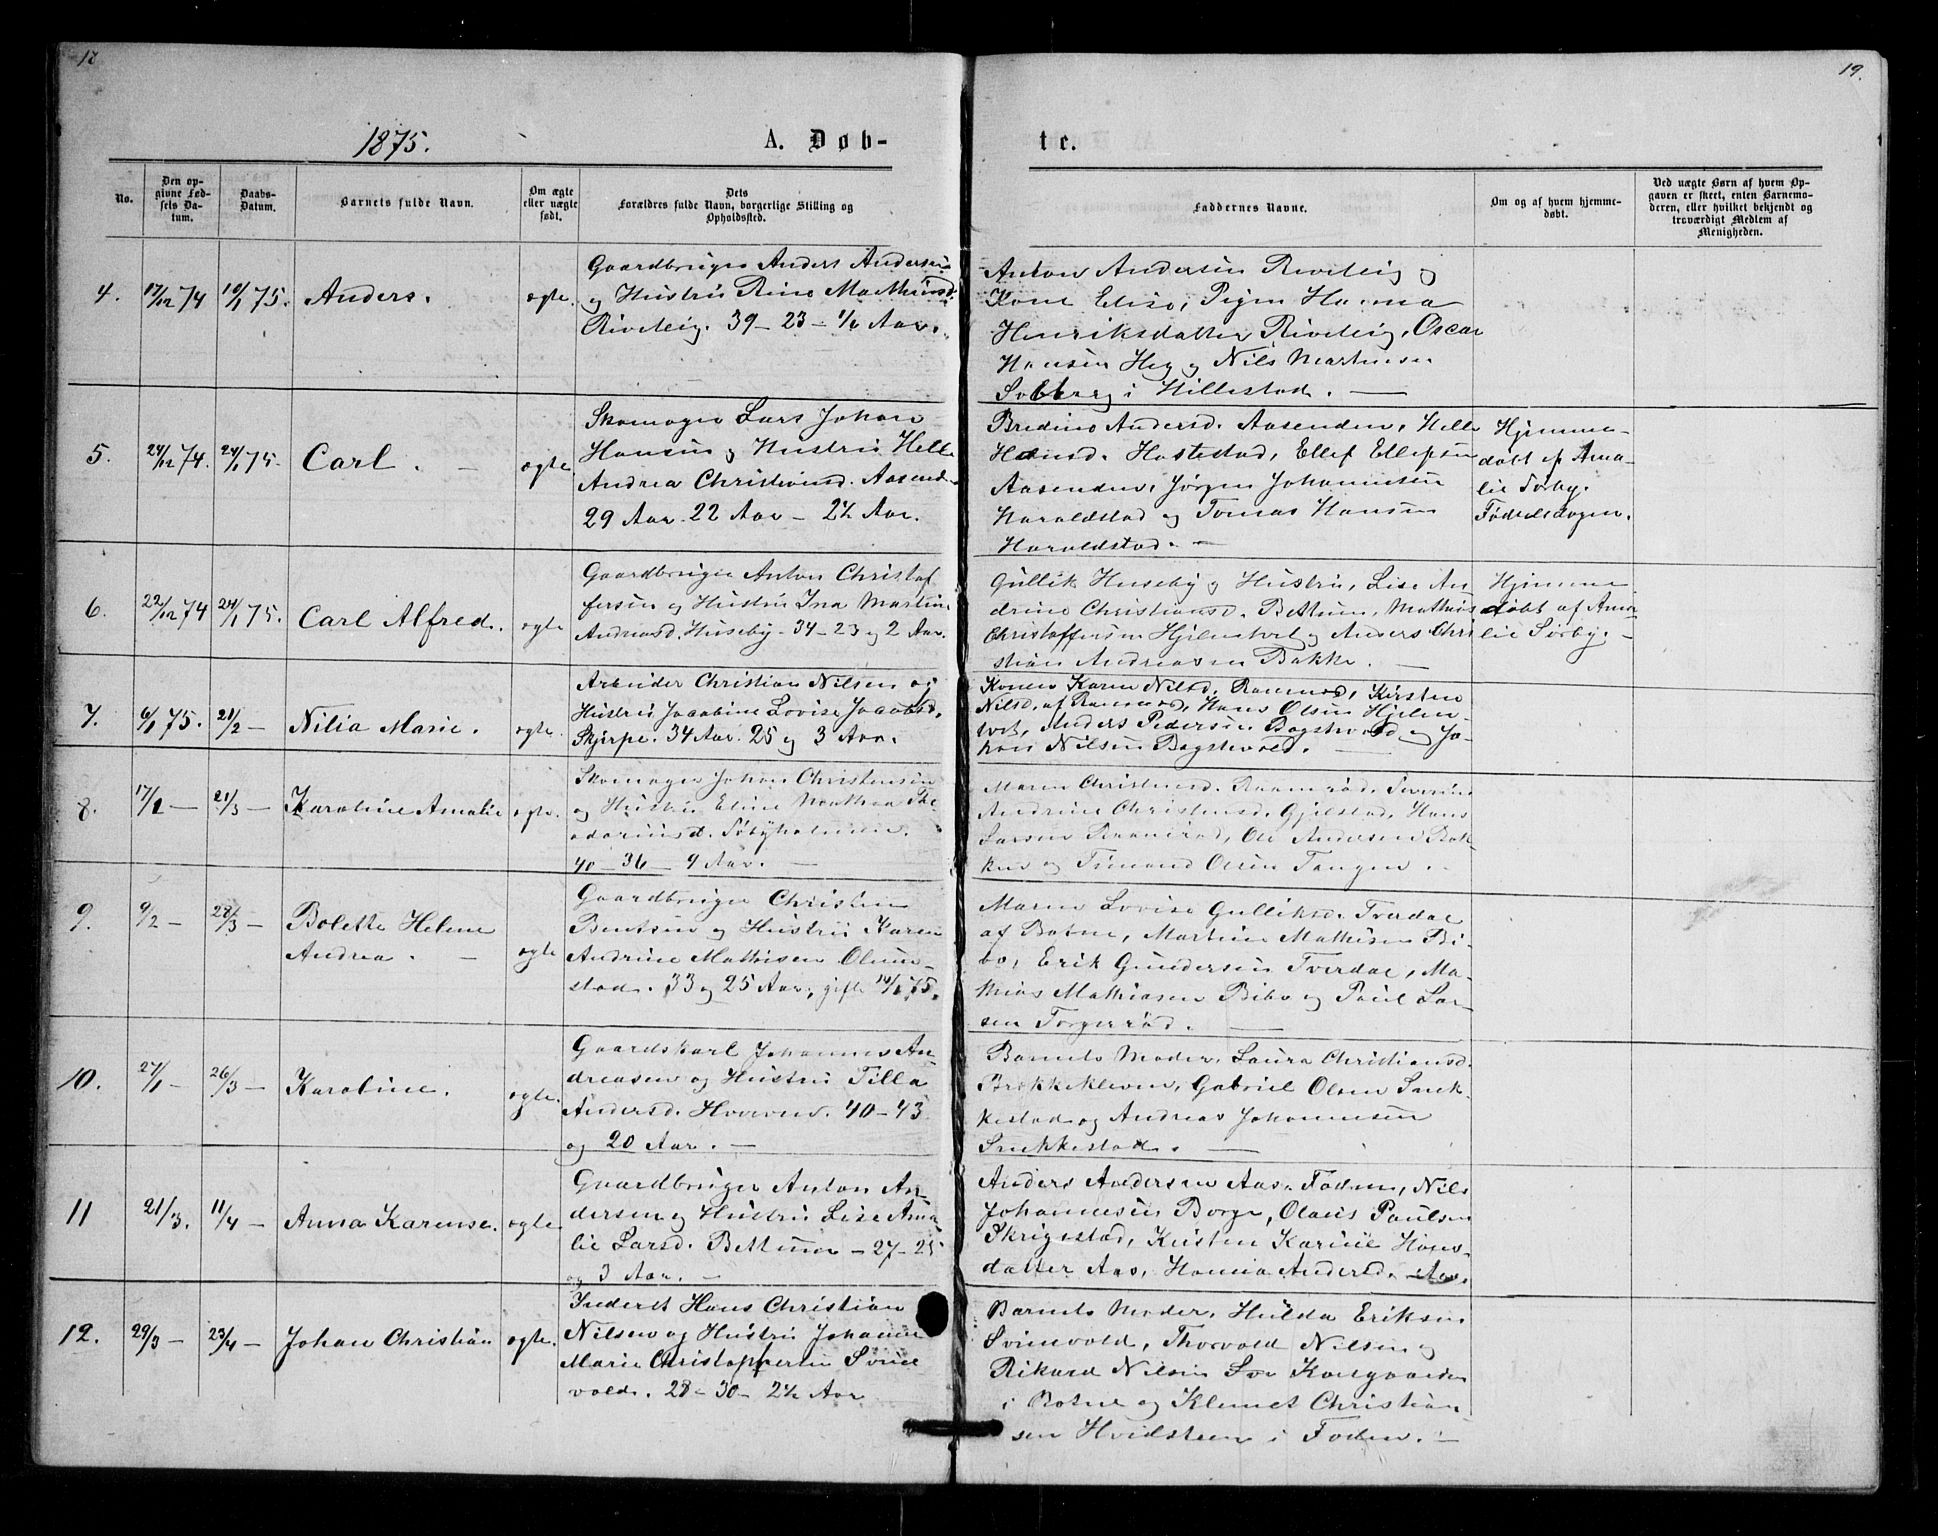 18
19.
1875.
A. Døb-
te.
No.
Den op-
givne Fød-
sels Da-
tum.
Daabs-
Datum.
Barnets fulde Navn.
Om ægte
eller uægte
født.
Dets
Forældres fulde Navn, borgerlige Stilling og
Opholdssted.
Faddernes Navne.
Om og af hvem hjemme-
døbt.
Ved uægte Børn af hvem Op-
gaven er skeet, enten Barnemo-
deren, eller hvilket bekjendt og
troværdigt Medlem af
Menigheden.
4. 17/12 74 10/1 75. Anders. ægte.
Gaardbruger Anders Andersen
og Hustru Rine Mathiasd.
Riveteig. 39 – 23 – 1/2 Aar.
Anton Andersen Riveteig og
Kone Elise, Pigen Hanna
Henriksdatter Riveteig, Oscar
Hansen Heg og Nils Martinsen
Solberg i Hillestad. —
5. 24/12 74. 24/1 75. Carl. – ægte
Skomager Lars Johan
Hansen og Hustru Helle
Andrea Christiansd. Aasend.
29 Aar. 22 Aar – 2½ Aar.
Bredine Andersd. Aasenden, Helle
Hansd. Hostestad, Ellef Ellefsen
Aasenden, Jørgen Johannesen
Haraldstad og Tomas Hansen
Haraldstad. –
Hjemme-
døbt af Ama-
lie Sørby.
Fødselsdagen.
6. 22/12 74 24/1 75. Carl Alfred. ægte
Gaardbruger Anton Christof
fersen og Hustru Ina Martine
Andreasd. Huseby – 34 – 23 og 2 Aar.
Gullik Huseby og Hustru, Lise An
drine Christiansd. Bettum, Mathias
Christoffersen Hjelmtvet og Anders Chri
stian Andreasen Bakke. —
Hjemme
døbt af Ama
lie Sørby. –
7. 6/1 75. 21/2 – Nilia Marie. ægte.
Arbeider Christian Nilsen og
Hustru Jacobine Lovise Jacobsd.
Skjerpe. 34 Aar. 25 og 3 Aar.
Konen Karen Nilsd. Ramerød, Kirsten
Nilsd. af Ramerød, Hans Olsen Hjelm-
tvet, Anders Pedersen Bogstvold og Jo-
han Nilsen Bogstvold. —
8. 17/1 – 21/3 – Karoline Amalie ægte.
Skomager Johan Christensen
og Hustru Eline Mathea The
odoriusd. Søbyholmen.
40 – 36 – 9 Aar. —
Maren Christensd. Raanerød, Severine
Andrine Christensd. Gjelstad, Hans
Larsen Raanerød, Ole Andersen Bak-
ken og Simand Olsen Tangen. –
9. 9/2 – 28/3 – Bolette Helene
Andrea. – ægte
Gaardbruger Christen
Bentsen og Hustru Karen
Andrine Mathisen Olum-
stad. 33 og 25 Aar, gifte 14/1 75.
Maren Lovise Gulliksd. Tverdal
af Botne, Martine Mathisen Bi-
bo, Erik Gundersen Tverdal, Ma-
thias Mathiasen Bibo og Paul Lar-
sen Torgerrød. —
10. 27/1 – 26/3 – Karoline. ægte.
Gaardskarl Johannes An-
dreasen og Hustru Tilla
Andersd. Hvorven. 40 – 43
og 20 Aar. —
Barnets Moder, Laura Christiansd.
Brekkekleven, Gabriel Olsen Snek-
kestad og Andreas Johannesen
Snekkestad. —
11 21/3. 11/4 – Anna Karense. ægte
Gaardbruger Anton An-
dersen og Hustru Lise Ama
lie Larsd. Bettum – 27 – 25
og 3 Aar. –
Anders Andersen Aas. Foden, Nils
Johannesen Borge, Olaus Paulsen
Skrigestad, Kirsten Karine Hans-
datter Aas, Hanna Andersd. Aas.
12. 29/3 – 23/4 – Johan Christian ægte.
Inderst Hans Christian
Nilsen og Hustru Johanne
Marie Christophersen Svine
vold. 28 – 30 – 2½ Aar
Barnets Moder, Hulda Eriksen
Svinevold, Thorvald Nilsen og
Rikard Nilsen Kongsgaarden
i Botne og Klemet Christian
sen Hvidsteen i Foden. –